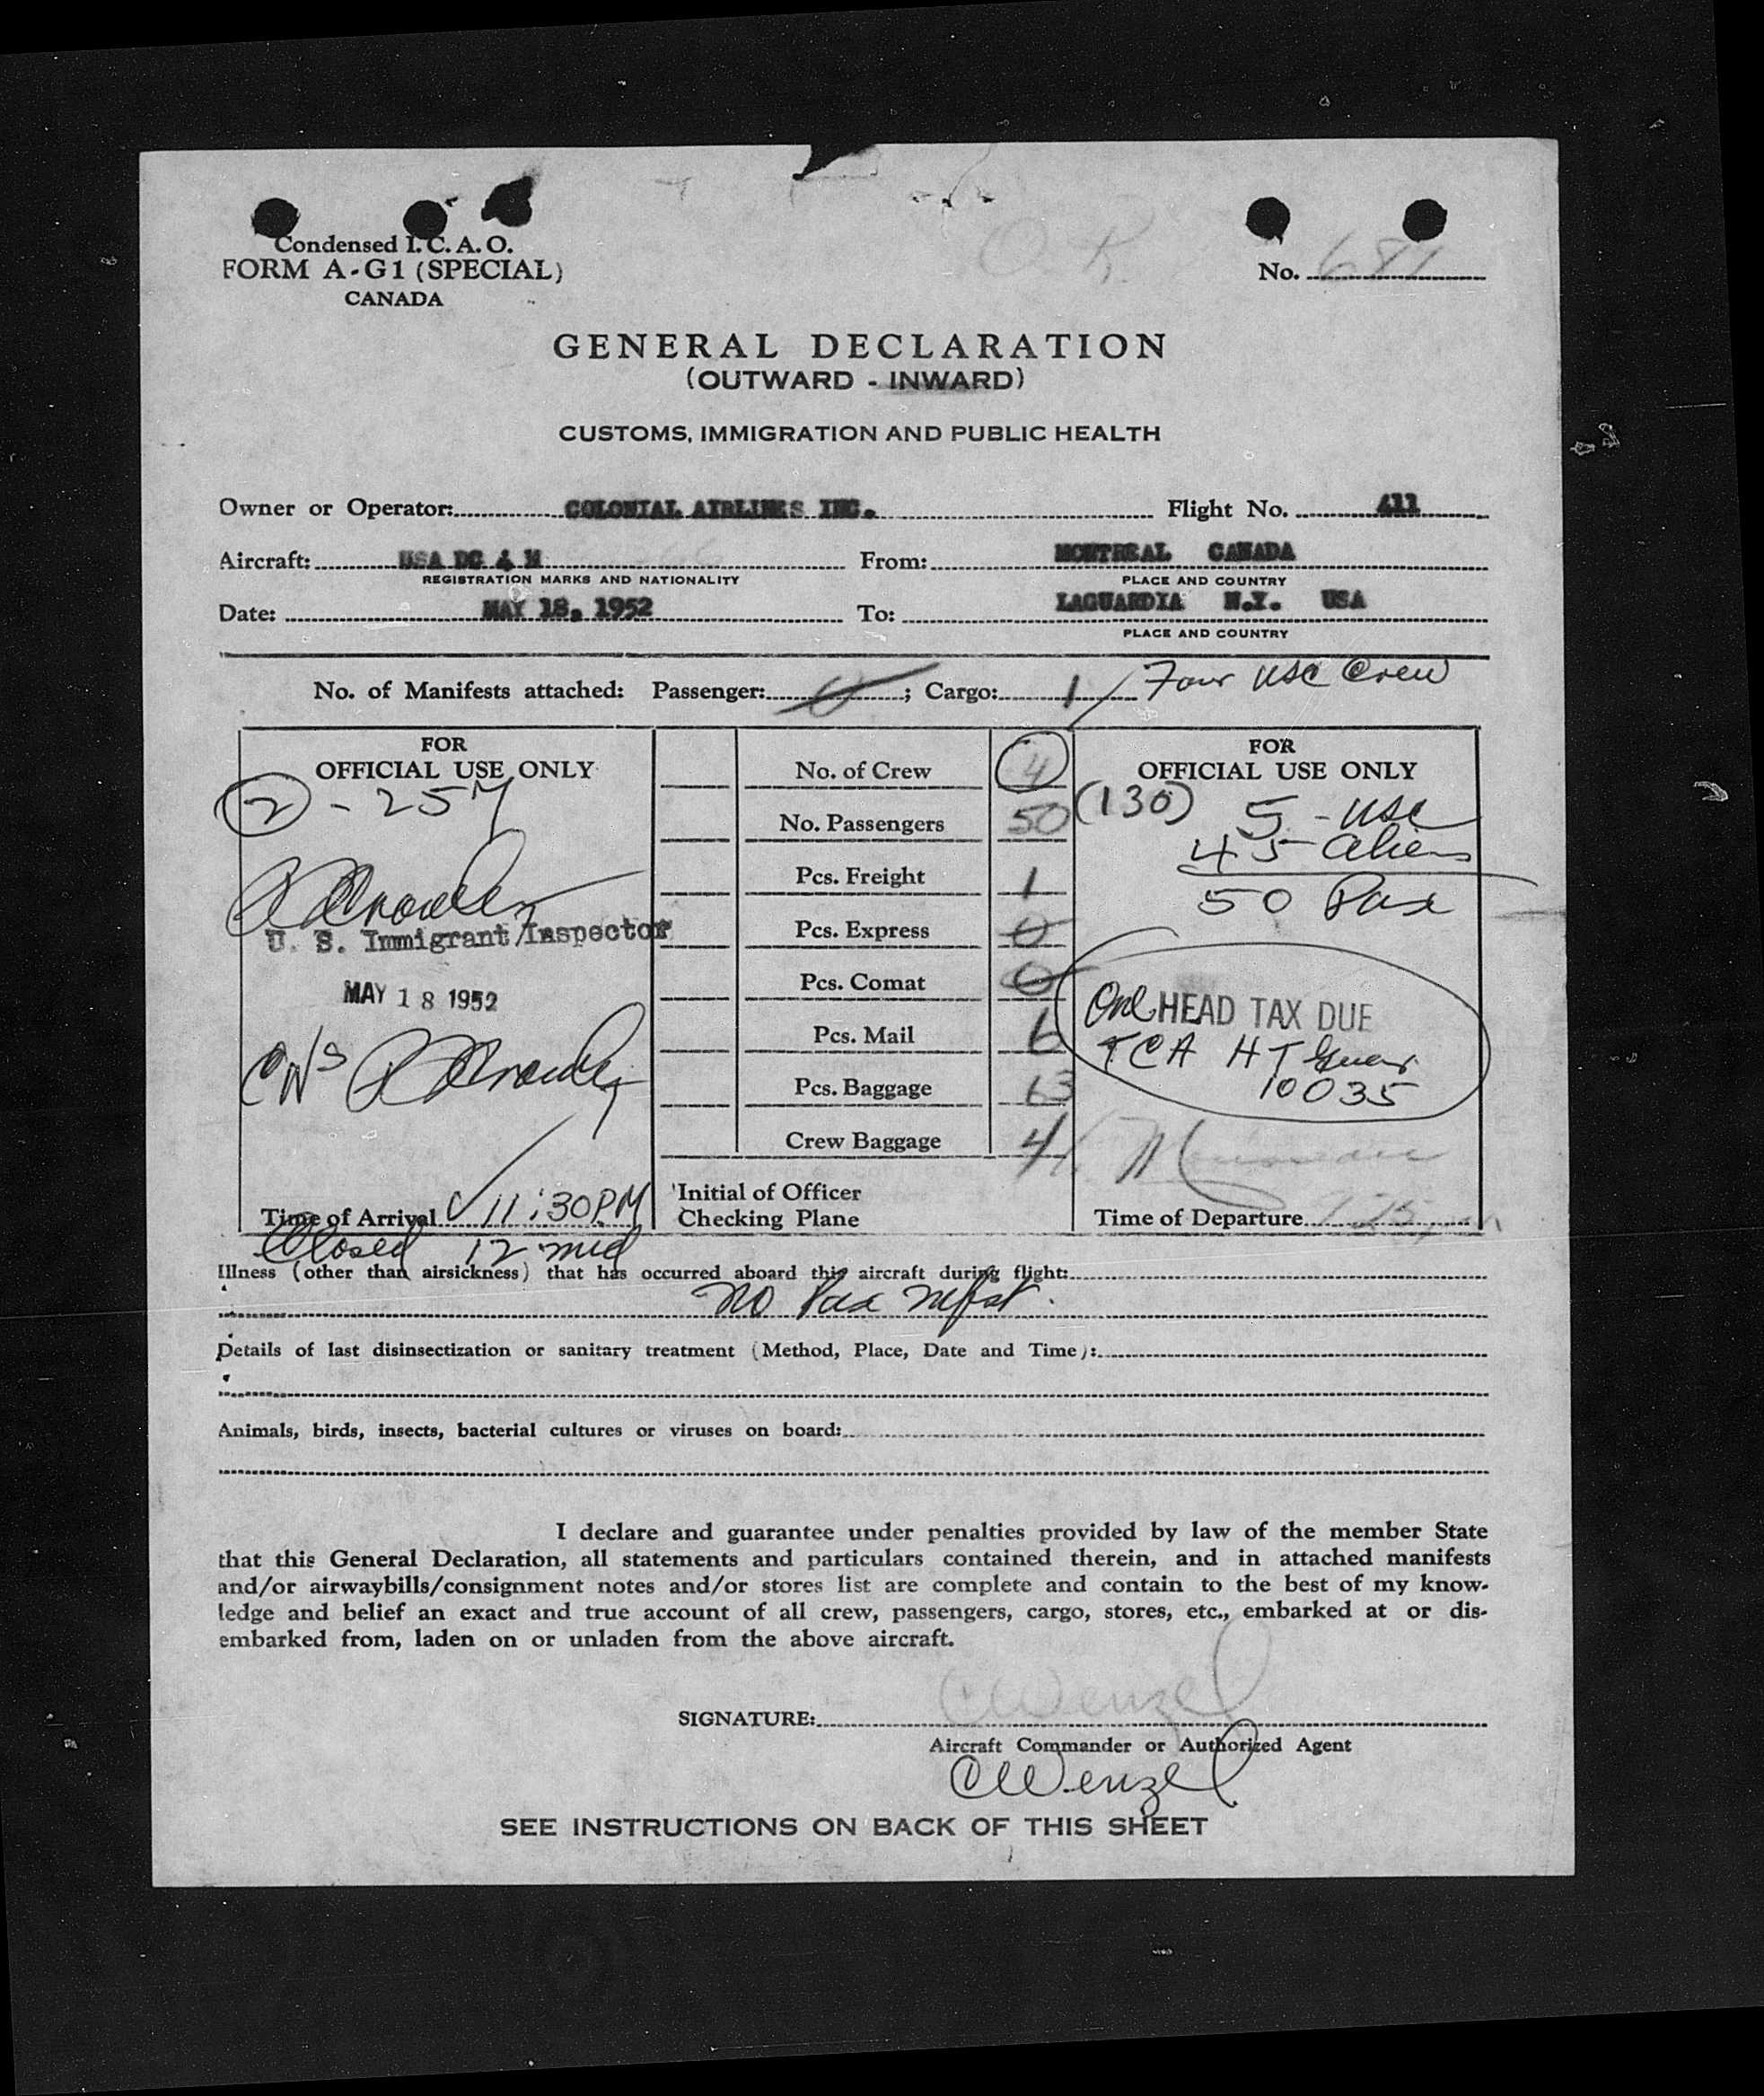 Condensed I. C. A. O.
FORM A-G1 (SPECIAL)
CANADA
O.K.
No. 681
GENERAL DECLARATION
(OUTWARD - INWARD)
CUSTOMS, IMMIGRATION AND PUBLIC HEALTH
Owner or Operator: COLONIAL AIRLINES INC. Flight No. 411
Aircraft: USA DC 4 N From: MONTREAL CANADA
REGISTRATION MARKS AND NATIONALITY PLACE AND COUNTRY
Date: MAY 18, 1952 To: LAGUARDIA N.Y. USA
PLACE AND COUNTRY
No. of Manifests attached: Passenger: 0 ; Cargo: 1 Four USC Crew
FOR
OFFICIAL USE ONLY
2 - 25
U. S. Immigrant Inspector
MAY 18 1952
Time of Arrival 11:30 PM
Closed 12 mid
No. of Crew 4
No. Passengers 50
Pcs. Freight 1
Pcs. Express 0
Pcs. Comat 0
Pcs. Mail 6
Pcs. Baggage 63
Crew Baggage 4
Initial of Officer
Checking Plane
FOR
OFFICIAL USE ONLY
(130) 5 - USC
45 Aliens
50 Pax
One HEAD TAX DUE
TCA H T Guar
10035
Time of Departure
Illness (other than airsickness) that has occurred aboard this aircraft during flight:
No Pax Mfst.
Details of last disinsectization or sanitary treatment (Method, Place, Date and Time):
Animals, birds, insects, bacterial cultures or viruses on board:
I declare and guarantee under penalties provided by law of the member State
that this General Declaration, all statements and particulars contained therein, and in attached manifests
and/or airwaybills/consignment notes and/or stores list are complete and contain to the best of my know-
ledge and belief an exact and true account of all crew, passengers, cargo, stores, etc., embarked at or dis-
embarked from, laden on or unladen from the above aircraft.
SIGNATURE: CWenzel
Aircraft Commander or Authorized Agent
CWenzel
SEE INSTRUCTIONS ON BACK OF THIS SHEET